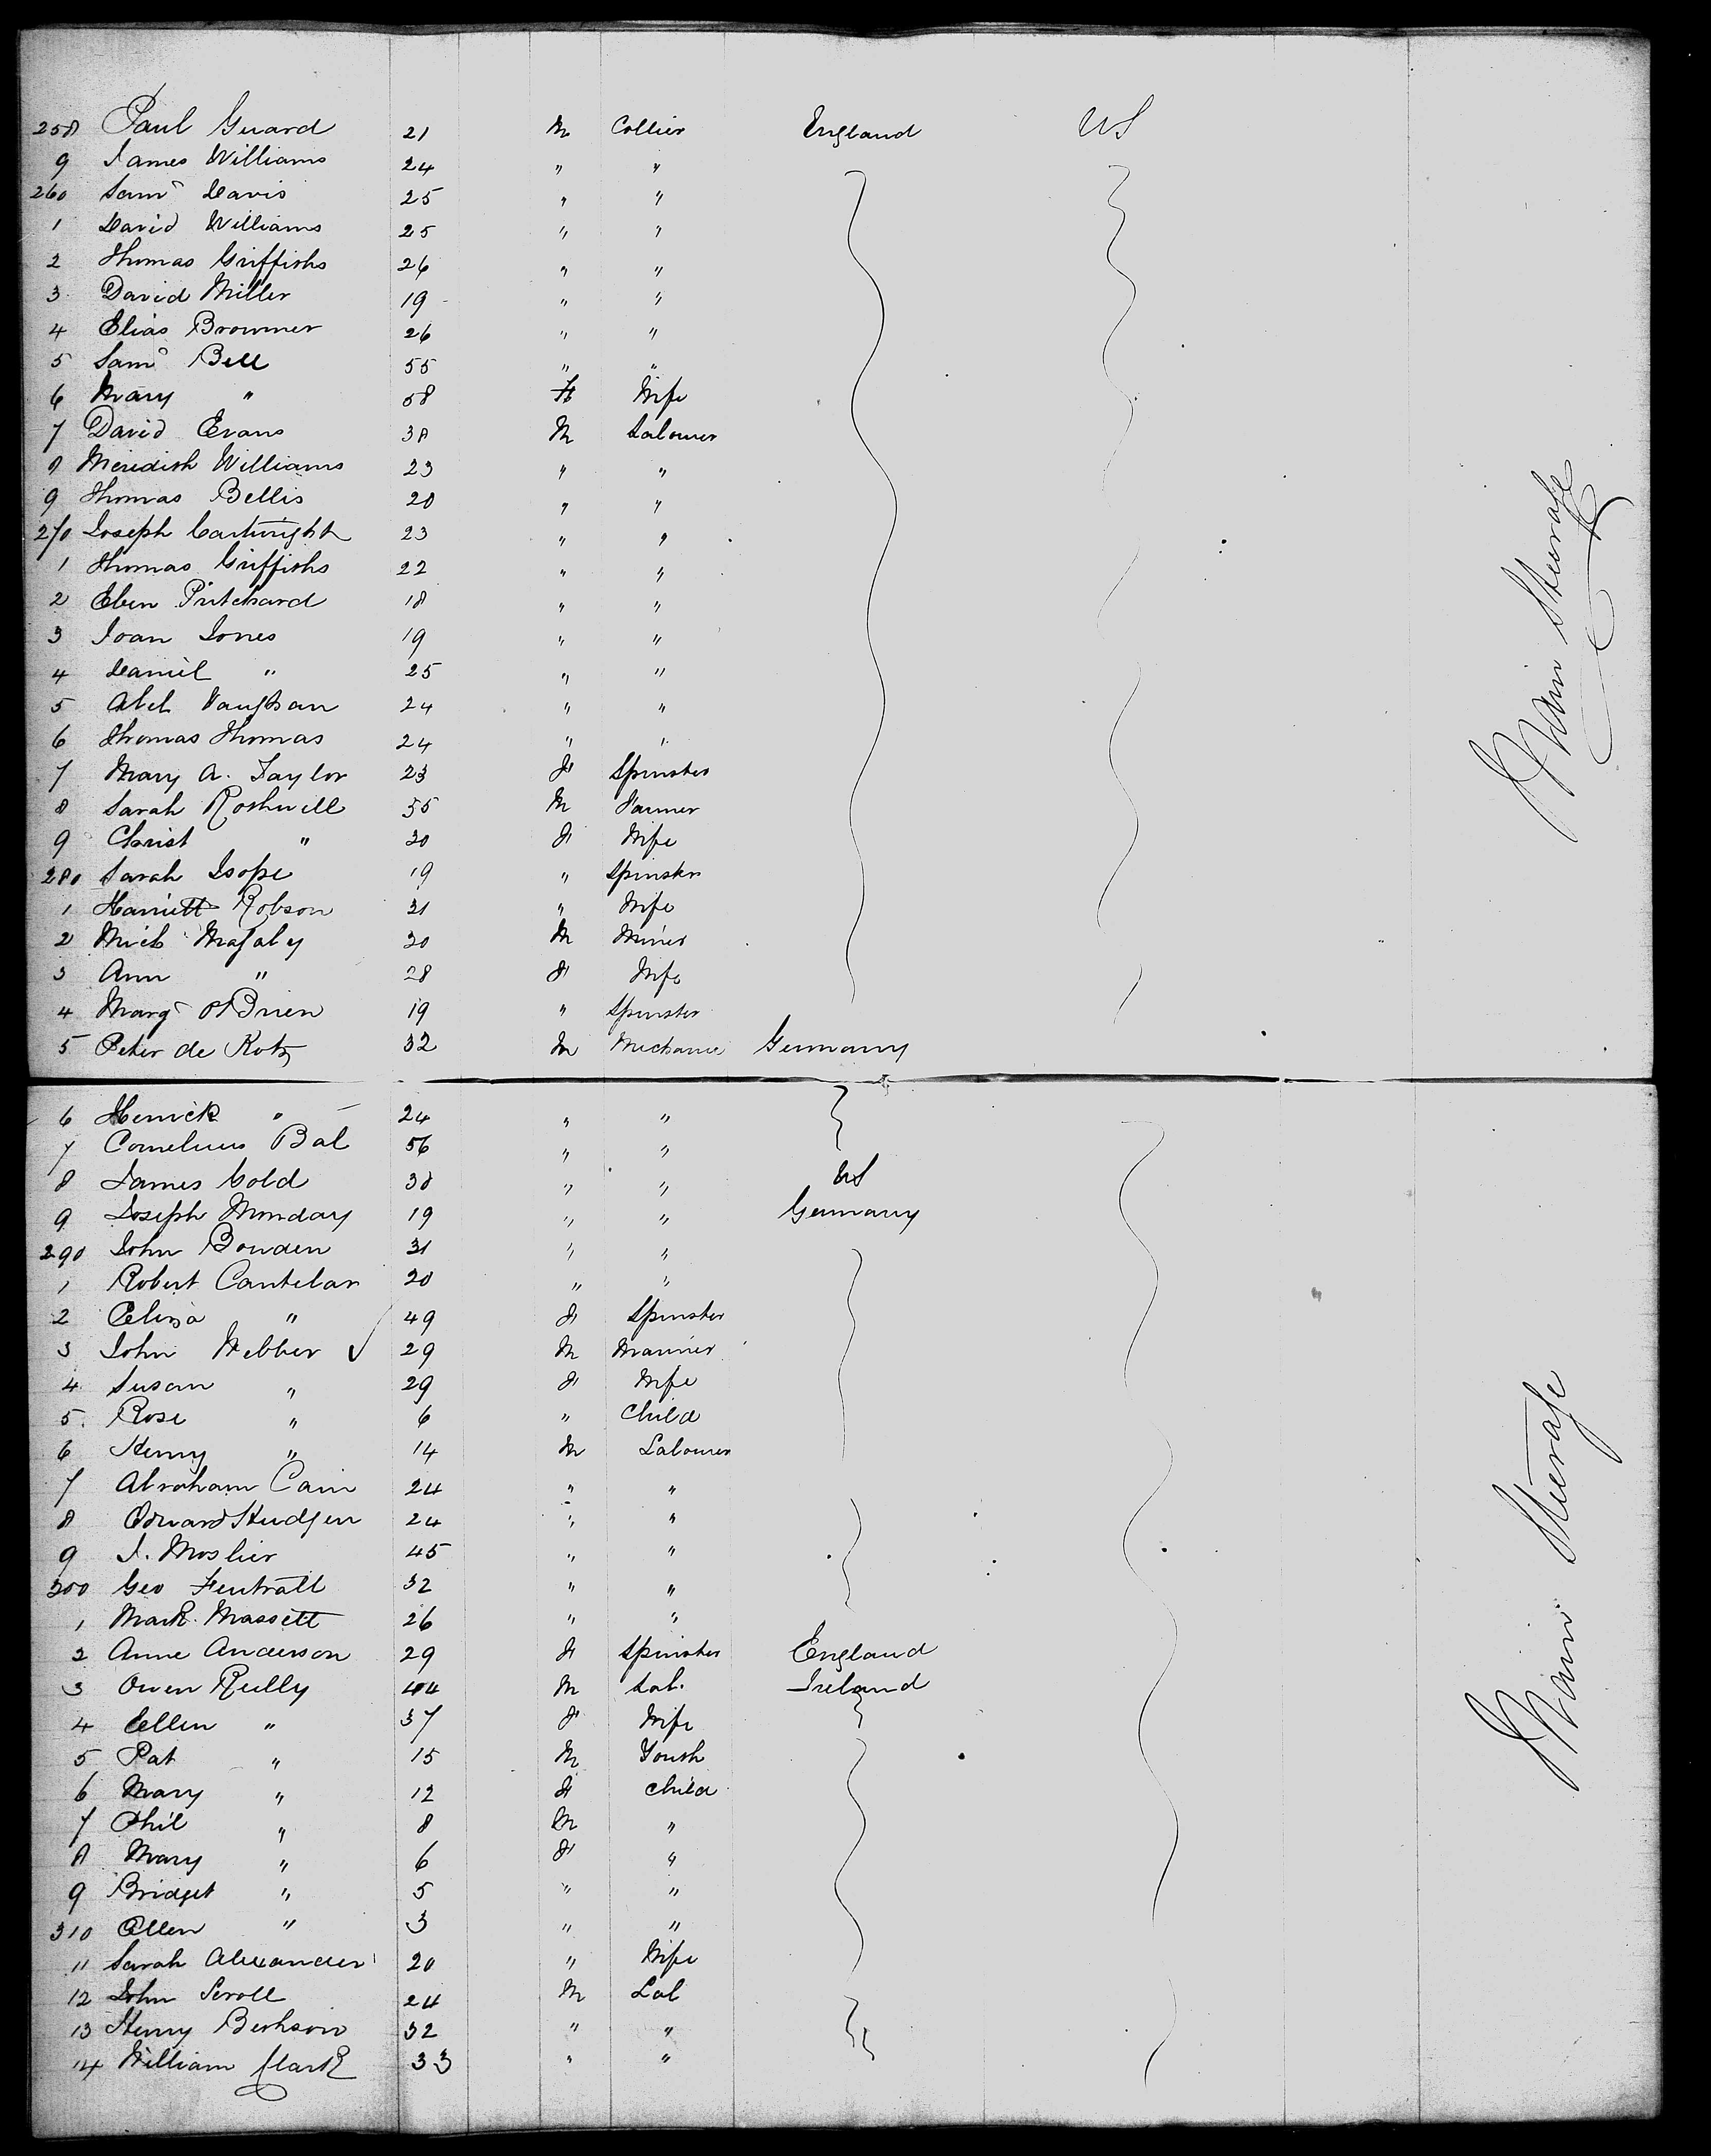 258 Paul Guard 21 M Collier England US
9 James Williams 24 " "
260 Saml Davis 25 " "
1 David Williams 25 " "
2 Thomas Griffiths 26 " "
3 David Miller 19 " "
4 Elias Brownner 26 " "
5 Saml Bell 55 " "
6 Mary " 58 F Wife
7 David Evans 38 M Labourer
8 Meridith Williams 23 " "
9 Thomas Bellis 20 " "
270 Joseph Cartwright 23 " "
1 Thomas Griffiths 22 " "
2 Eben Pritchard 18 " "
3 Joan Jones 19 " "
4 Daniel " 25 " "
5 Abel Vaughan 24 " "
6 Thomas Thomas 24 " "
7 Mary A. Taylor 23 F Spinster
8 Sarah Rothwell 55 M Farmer
9 Christ " 30 F Wife
280 Sarah Isope 19 " Spinster
1 Harriett Robson 31 " Wife
2 Mich 30 M Miner
3 Ann " 28 F Wife
4 Margt O'Brien 19 " Spinster
5 Peter de Kotz 32 M Mechanic Germany
6 Henrick " 24 " "
7 Cornelius Bal 56 " "
8 James Cold 38 " " US
9 Joseph Monday 19 " " Germany
290 John Bowden 31 " "
1 Robert Cantelar 20 " "
2 Eliza " 49 F Spinster
3 John Webber ✓ 29 M Mariner
4 Susan " 29 F Wife
5 Rose " 6 " Child
6 Henry " 14 M Labourer
7 Abraham Cain 24 " "
8 Edward Hudgen 24 " "
9 J. Moslier 45 " "
300 Geo Fentratt 32 " "
1 Mark Massett 26 " "
2 Anne Anderson 29 F Spinster England
3 Owen Reilly 44 M Lab. Ireland
4 Ellen " 37 F Wife
5 Pat " 15 M Youth
6 Mary " 12 F Child
7 Phil " 8 M "
8 Mary " 6 F "
9 Bridget " 5 " "
310 Ellen " 3 " "
11 Sarah Alexander 20 " Wife
12 John Scroll 24 M Lab
13 Henry Berhson 32 " "
14 William Clark 33 " "
Main Steerage
Main Steerage